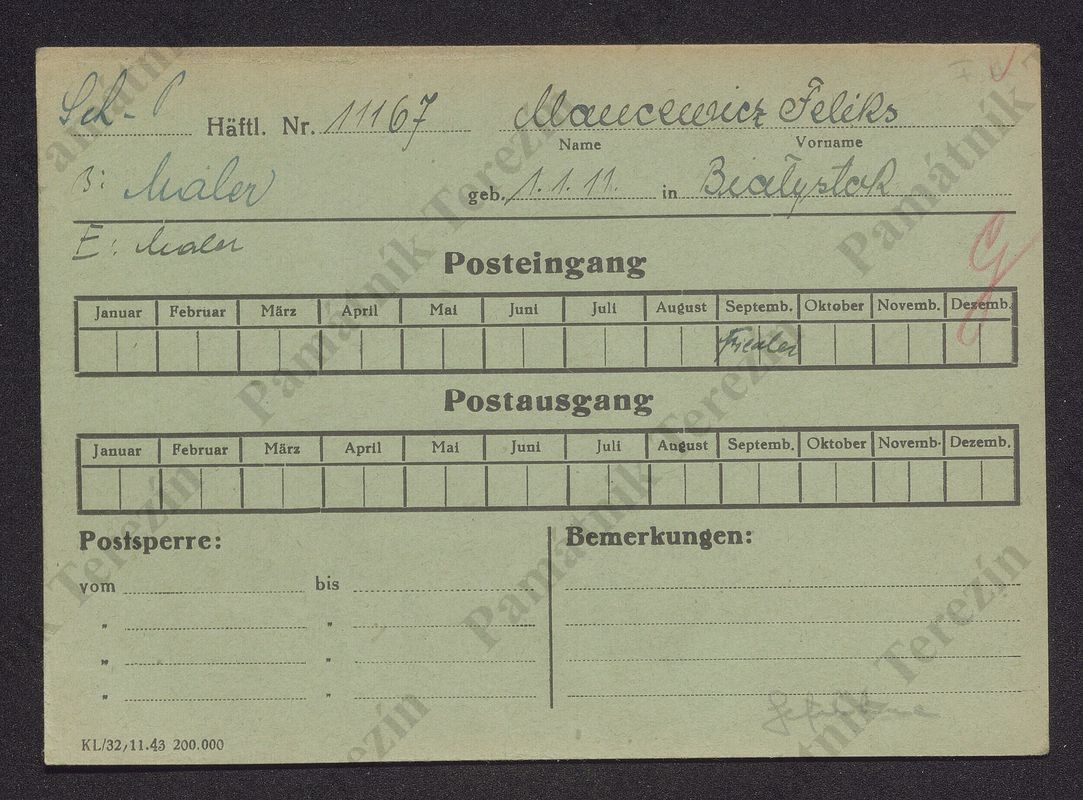 Sch-P Häftl. Nr. 11167 Mancewicz Feliks
Name Vorname
B: Maler geb. 1.1.11. in Białystok
E: Maler
Posteingang
Januar Februar März April Mai Juni Juli August Septemb. Oktober Novemb. Dezemb.
Postausgang
Januar Februar März April Mai Juni Juli August Septemb. Oktober Novemb. Dezemb.
Postsperre: Bemerkungen:
vom bis
" "
" "
" "
KL/32/11.43 200.000
Památník Terezín